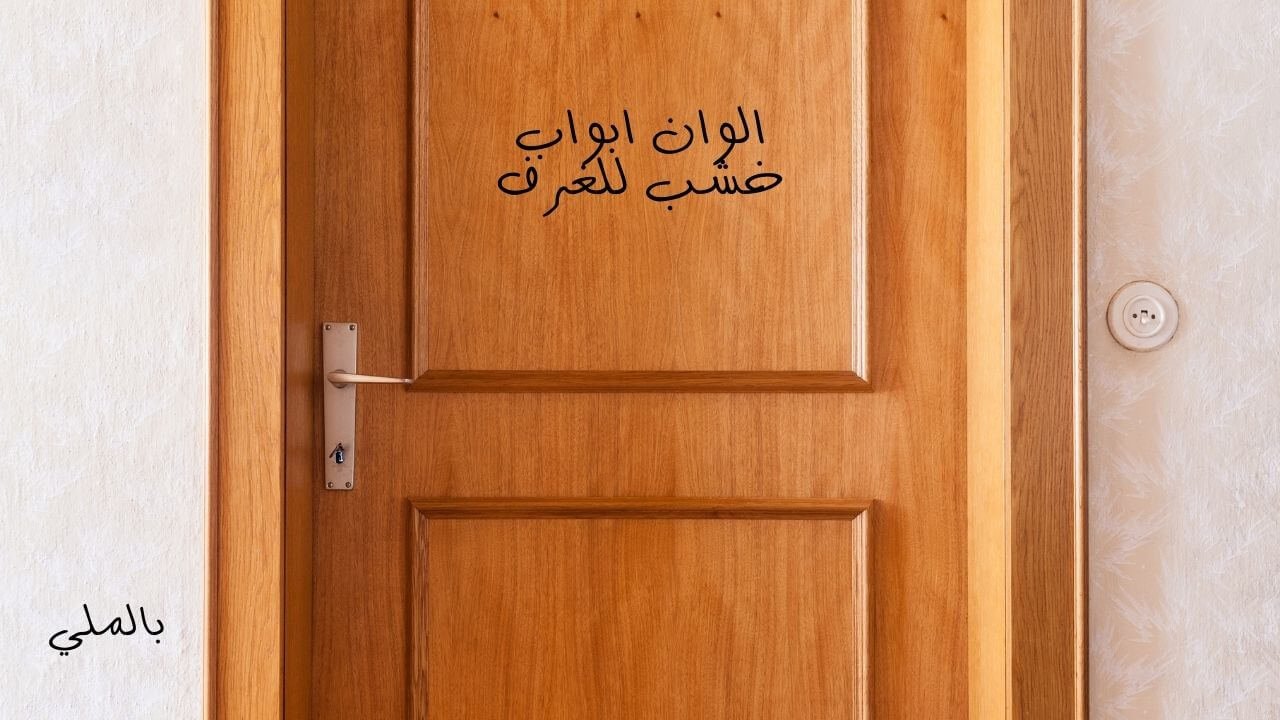 الوان ابواب
خشب للغرف
بالملي